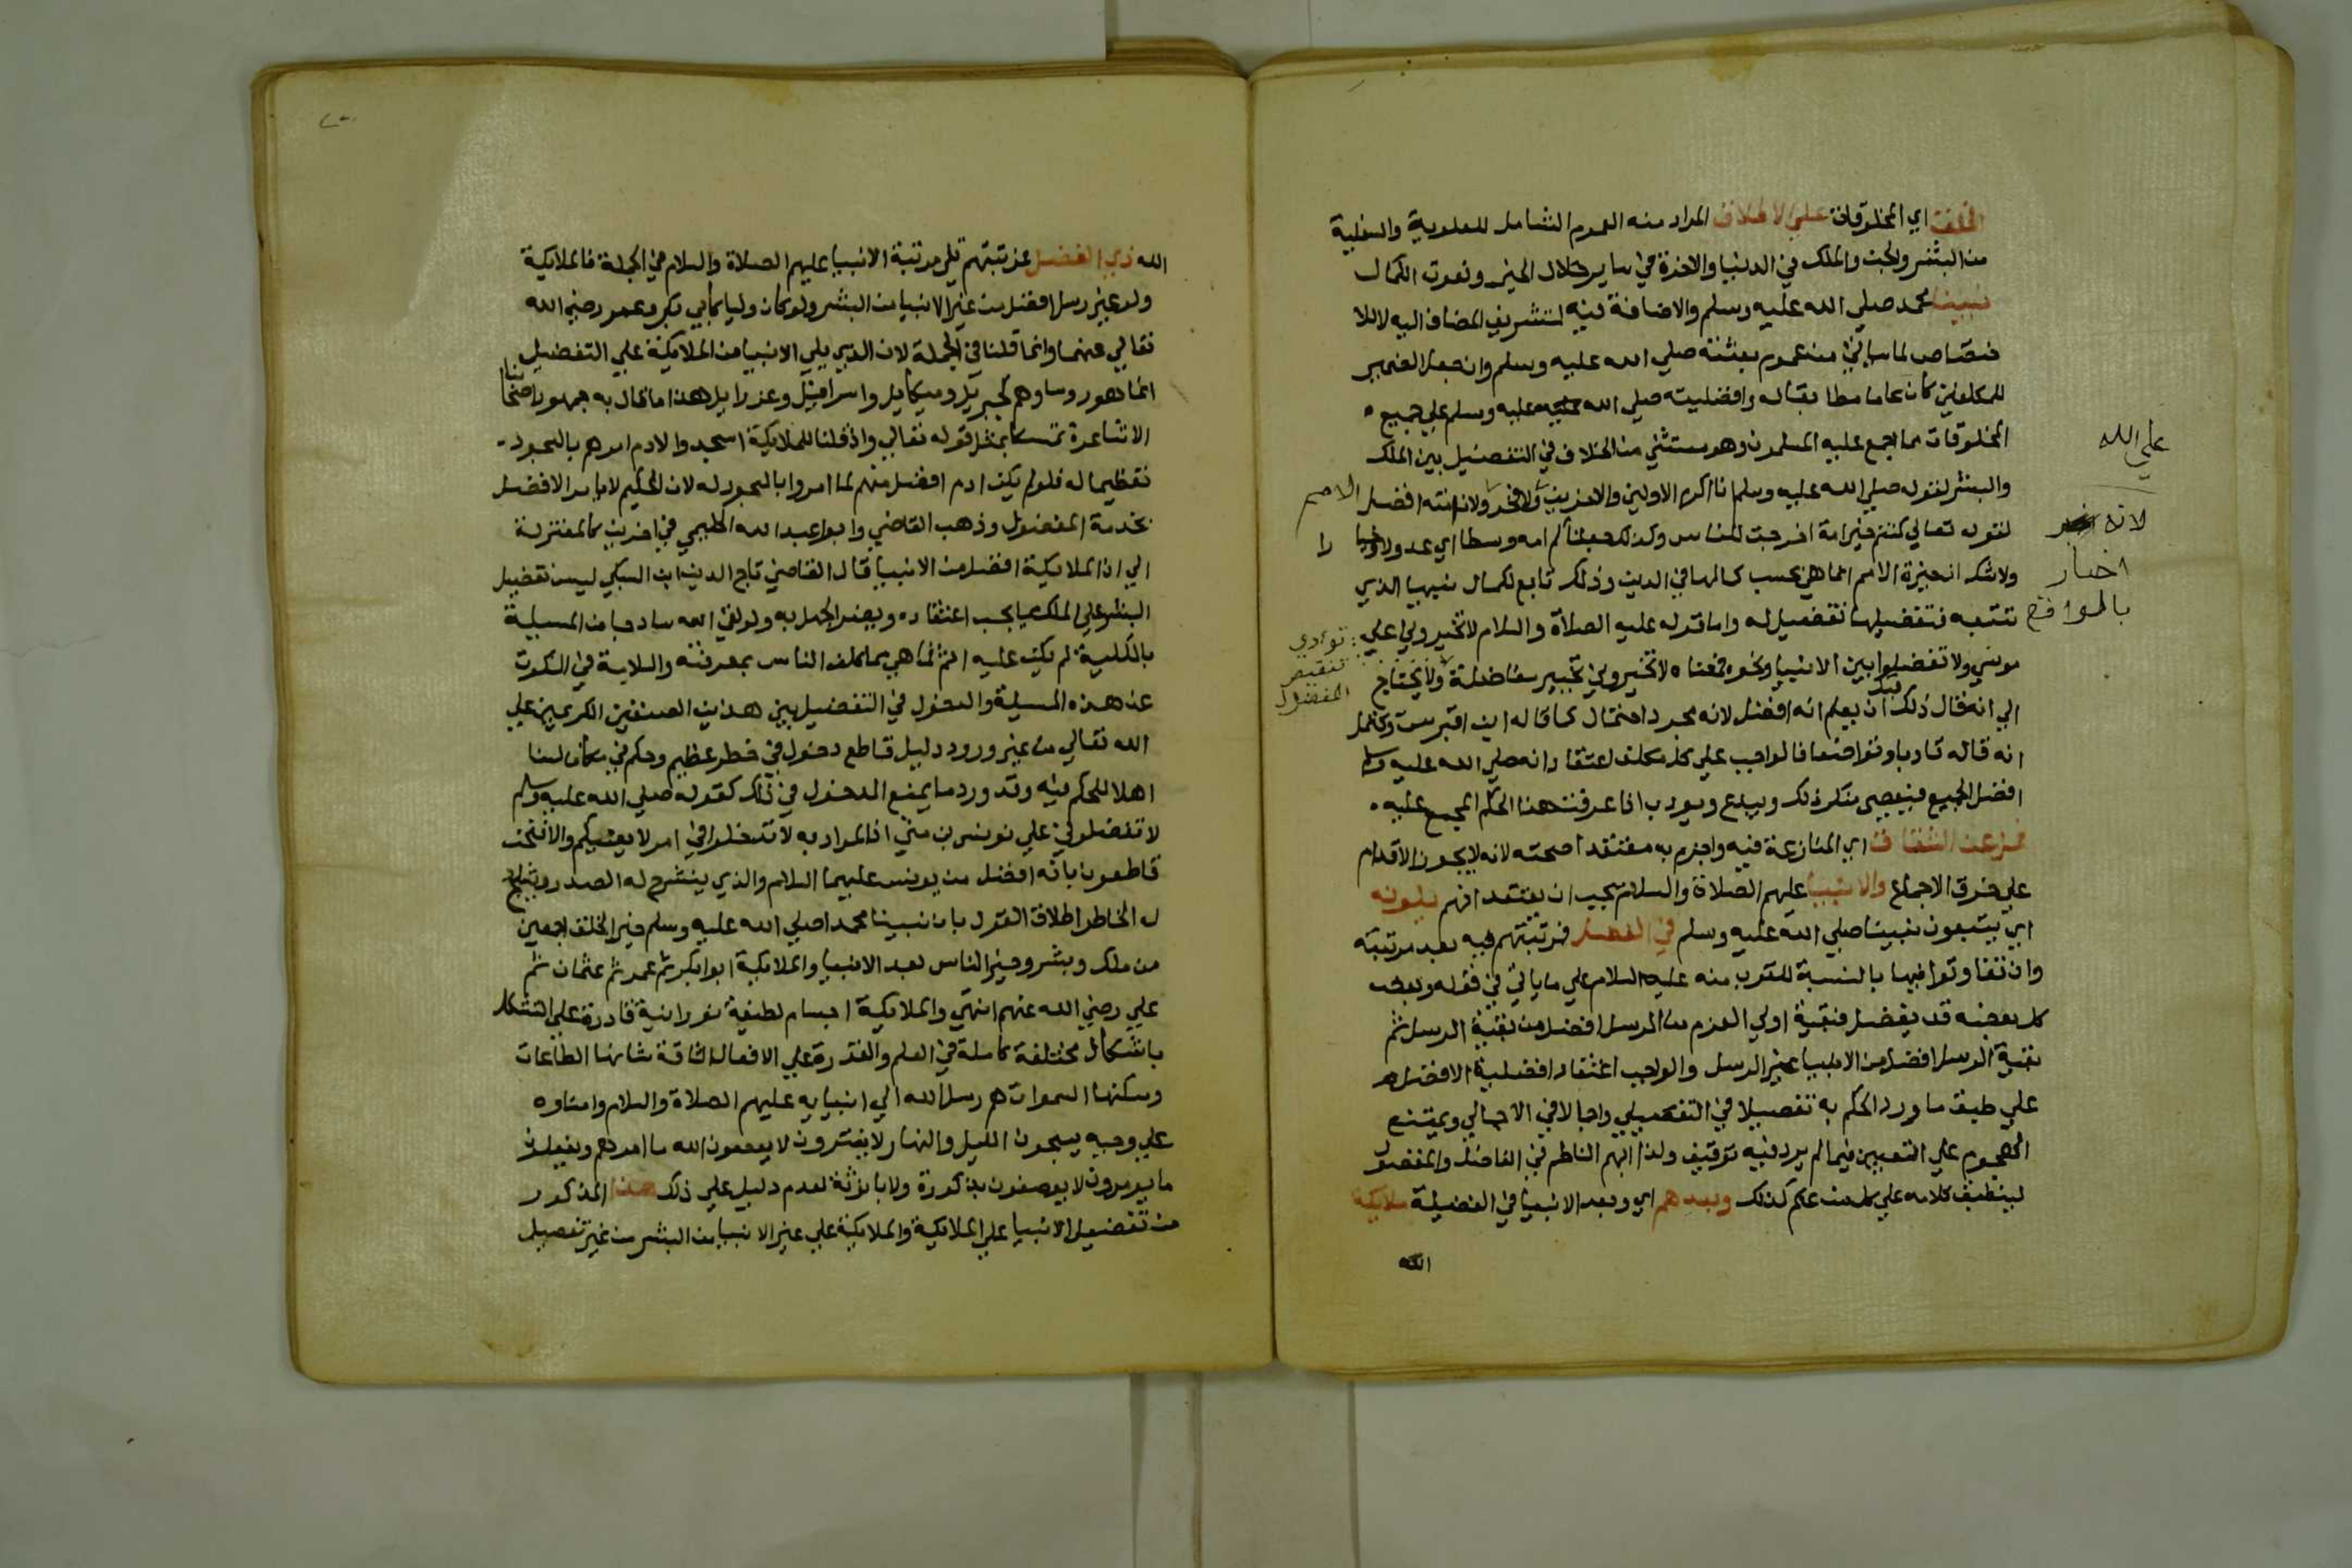 الخلق اي المخلوقات علي الاطلاق المراد منه العموم الشامل للعلوية والسفلية
من البشر والجن والملك في الدنيا والاخرة في ساير خلال الخير ونعوت الكمال
نبينا محمد صلي الله عليه وسلم والاضافة فيه لتشريف المضاف اليه لا للا
ختصاص لما ياتي من عموم بعثته صلي الله عليه وسلم وان جعل الضمير
للمكلفين كان عاما مطابقا له وافضليته صلي الله عليه وسلم علي جميع
المخلوقات مما اجمع عليه المسلمون وهو مستثني من الخلاف في التفضيل بين الملك
والبشر لقوله صلي الله عليه وسلم انا اكرم الاولين والاخرين ولا فخر ولان امته افضل الامم
لقوله تعالي كنتم خير امة اخرجت للناس وكذلك جعلناكم امه وسطا اي عدولا وخيارا
ولا شك ان خيرية الامم انما هي بحسب كمالها في الدين وذلك تابع لكمال نبيها الذي
تتبعه فتفضيلها تفضيل له واما قوله عليه الصلاة والسلام لا تخيروني علي
موسي ولا تفضلوا بين الانبيا ونحوه فمعناه لا تخيروني تخيير مفاضلة ولا يحتاج
الي انه قال ذلك قبل ان يعلم انه افضل لانه مجرد احتمال كما قاله ابن اقبرس ويحتمل
انه قاله تادبا وتواضعا فالواجب علي كل مكلف اعتقاد انه صلي الله عليه وسلم
افضل الجميع فيعصي منكر ذلك ويبدع ويودب اذا عرفت هذا الحكم المجمع عليه
فمل عن الشقاق اي المنازعة فيه واجزم به معتقدا صحته لانه لا يجوز الاقدام
علي خرق الاجماع والانبيا عليهم الصلاة والسلام يجب ان يعتقد انهم يلونه
اي يتبعون نبينا صلي الله عليه وسلم في الفضل فمرتبتهم فيه بعد مرتبته
وان تفاوتوا فيها بالنسبة للقرب منه عليه السلام علي ما ياتي في قوله وبعض
كل بعضه قد يفضل فبقية اولي العزم من الرسل افضل من بقية الرسل ثم
بقية الرسل افضل من الانبيا غير الرسل والواجب اعتقاد افضلية الافضل
علي طبق ما ورد الحكم به تفصيلا في التفصيلي واجمالا في الاجمالي ويمتنع
الهجوم علي التعيين فيما لم يرد فيه توقيف ولذا ابهم الناظم في الفاضل والمفضول
لينطبق كلامه علي كل من علم كذلك وبعدهم اي وبعد الانبيا في الفضيلة ملايكة
الله
علي الله
لانه
اخبار
بالموافق
تودي
تنقيص
المفضول
الله ذي الفضل فمرتبتهم تلي مرتبة الانبيا عليهم الصلاة والسلام في الجملة فالملايكة
ولو غير رسل افضل من غير الانبيا من البشر ولو كان وليا كابي بكر وعمر رضي الله
تعالي عنهما وانما قلنا في الجملة لان الذي يلي الانبيا من الملايكة علي التفضيل
انما هو روساوهم كجبريل وميكاييل واسرافيل وعزراييل هذا ما قال به جمهور اصحابنا
الاشاعرة تمسكا بمثل قوله تعالي واذ قلنا للملايكة اسجدوا لادم امرهم بالسجود
تعظيما له فلو لم يكن ادم افضل منهم لما امروا بالسجود له لان الحكيم لا يامر الافضل
بخدمة المفضول وذهب القاضي وابو عبد الله الحليمي في اخرين كالمعتزلة
الي ان الملايكة افضل من الانبيا قال القاضي تاج الدين ابن السبكي ليس تفضيل
البشر علي الملك مما يجب اعتقاده ويضر الجهل به ولو لقي الله ساذجا من المسيلة
بالكلية لم يكن عليه اثم فما هي مما كلف الناس بمعرفته والسلامة في السكوت
عن هذه المسيلة والدخول في التفضيل بين هذين الصنفين الكريمين علي
الله تعالي من غير ورود دليل قاطع دخول في خطر عظيم وحكم في مكان لسنا
اهلا للحكم فيه وقد ورد ما يمنع الدخول في ذلك كقوله صلي الله عليه وسلم
لا تفضلوني علي يونس بن متي اذ المراد به لا تدخلوا في امر لا يعنيكم والا فنحن
قاطعون بانه افضل من يونس عليهما السلام والذي ينشرح له الصدر ويثلج
له الخاطر اطلاق القول بان نبينا محمدا صلي الله عليه وسلم خير الخلق اجمعين
من ملك وبشر وخير الناس بعد الانبيا والملايكة ابو بكر ثم عمر ثم عثمان ثم
علي رضي الله عنهم انتهي والملايكة اجسام لطيفة نورانية قادرة علي التشكل
باشكال مختلفة كاملة في العلم والقدرة علي الافعال الشاقة شانها الطاعات
ومسكنها السموات هم رسل الله الي انبيايه عليهم الصلاة والسلام وامناوه
علي وحيه يسبحون الليل والنهار لا يفترون لا يعصون الله ما امرهم ويفعلون
ما يومرون لا يوصفون بذكورة ولا بانوثة لعدم دليل علي ذلك هذا المذكور
من تفضيل الانبيا علي الملايكة والملايكة علي غير الانبيا من البشر من غير تفصيل